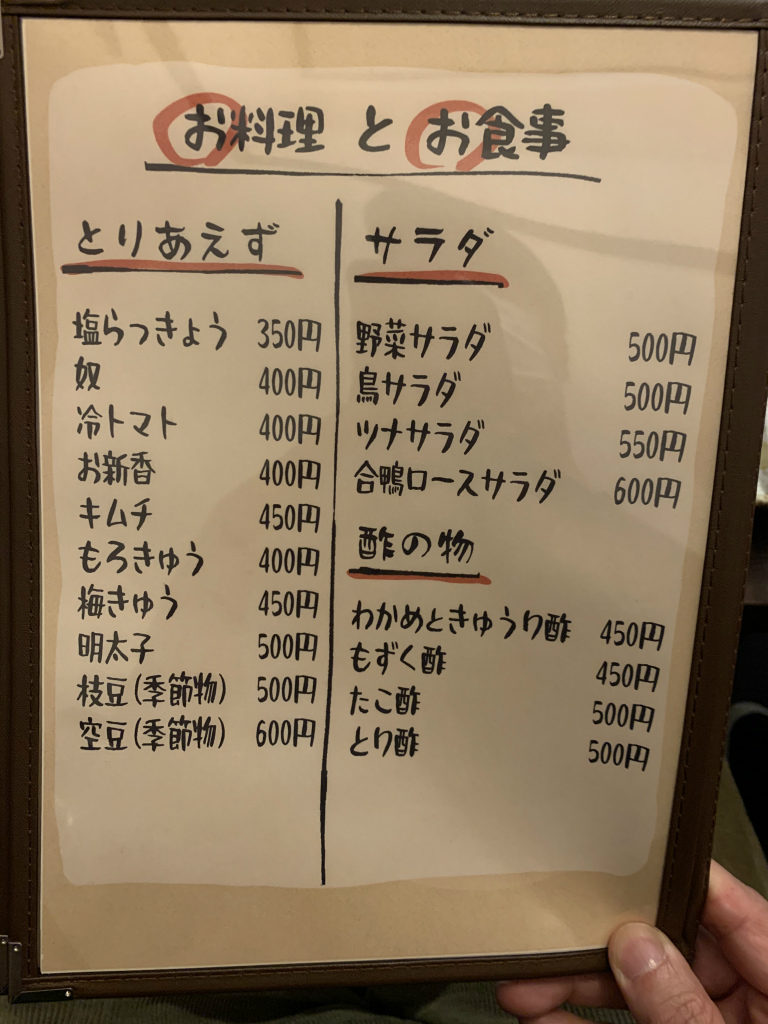 お料理 と お食事
とりあえず
塩らっきょう 350円
奴 400円
冷トマト 400円
お新香 400円
キムチ 450円
もろきゅう 400円
梅きゅう 450円
明太子 500円
枝豆(季節物) 500円
空豆(季節物) 600円
サラダ
野菜サラダ 500円
鳥サラダ 500円
ツナサラダ 550円
合鴨ロースサラダ 600円
酢の物
わかめときゅうり酢 450円
もずく酢 450円
たこ酢 500円
とり酢 500円